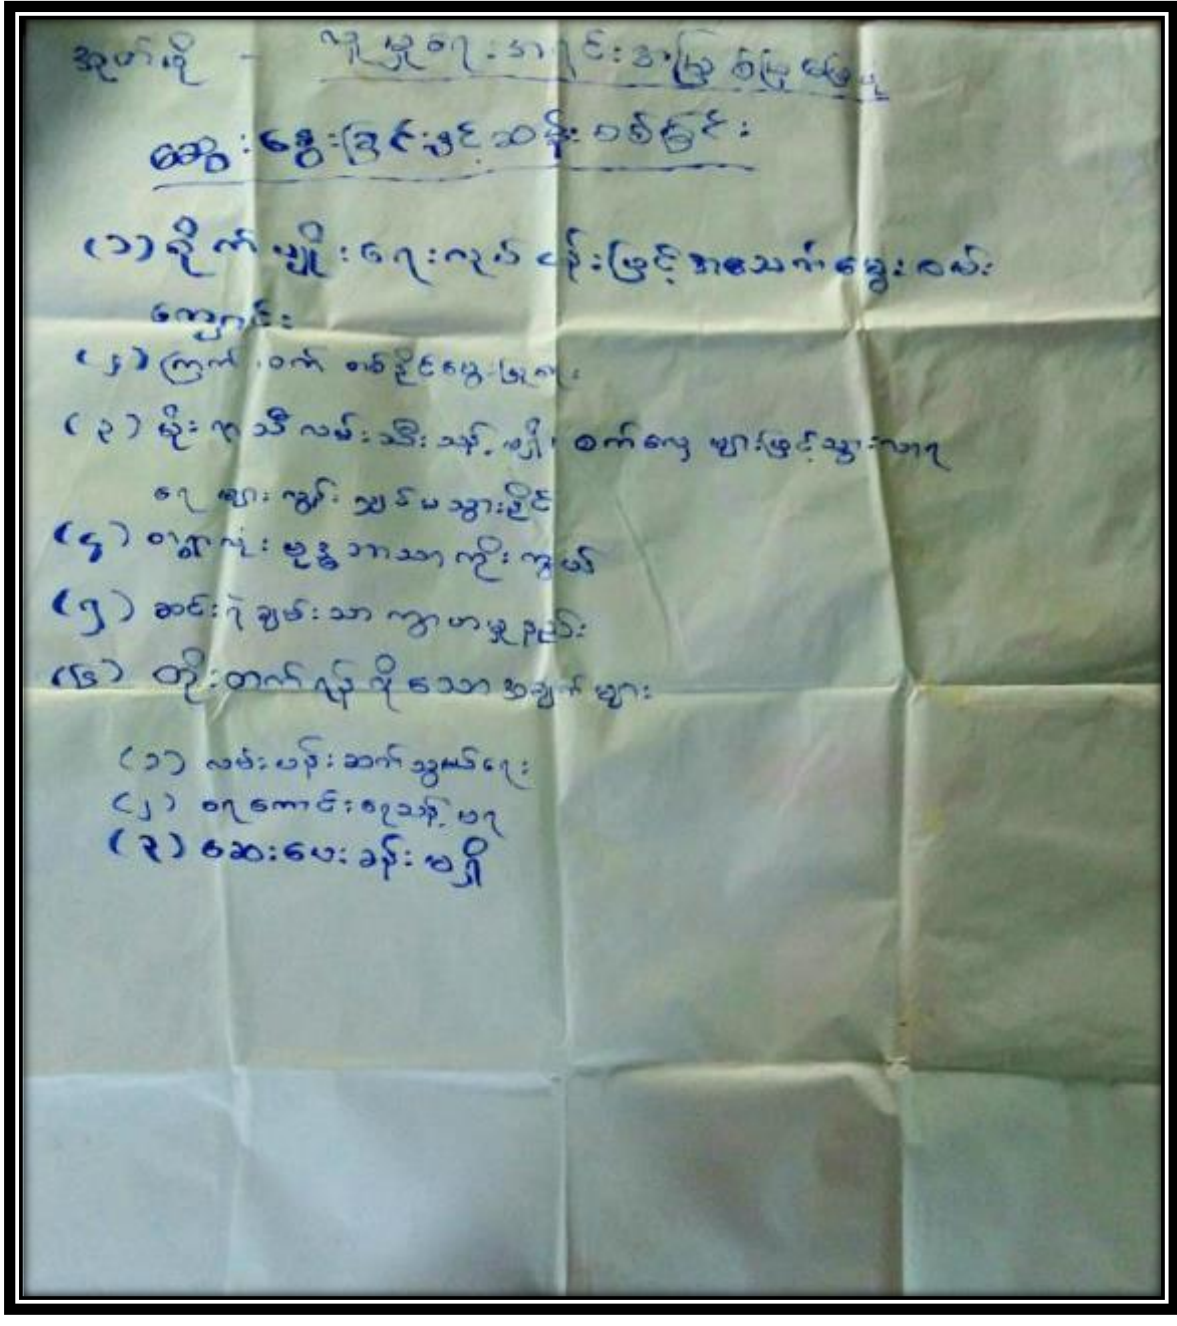 အုပ်စု - လူမှုရေးအရင်းအမြစ်ပြမြေပုံ
ဆွေးနွေးခြင်းနှင့်ဆန်းစစ်ခြင်း
(၁) စိုက်ပျိုးရေးလုပ်ငန်းဖြင့်အသက်မွေးဝမ်း
ကျောင်း
(၂) ကြက် ၊ ဝက် တစ်နိုင်မွေးမြူရေး
(၃) မိုးရာသီလမ်းသီးသန့်မရှိ၊ စက်လှေများဖြင့်သွားလာရ
ရေများလွန်းလျှင်မသွားနိုင်
(၄) တစ်ရွာလုံးဗုဒ္ဓဘာသာကိုးကွယ်
(၅) ဆင်းရဲချမ်းသာကွာဟမှုနည်း
(၆) တိုးတက်ရန်လိုသောအချက်များ
(၁) လမ်းပန်းဆက်သွယ်ရေး
(၂) ရေကောင်းရေသန့်မရ
(၃) ဆေးပေးခန်းမရှိ